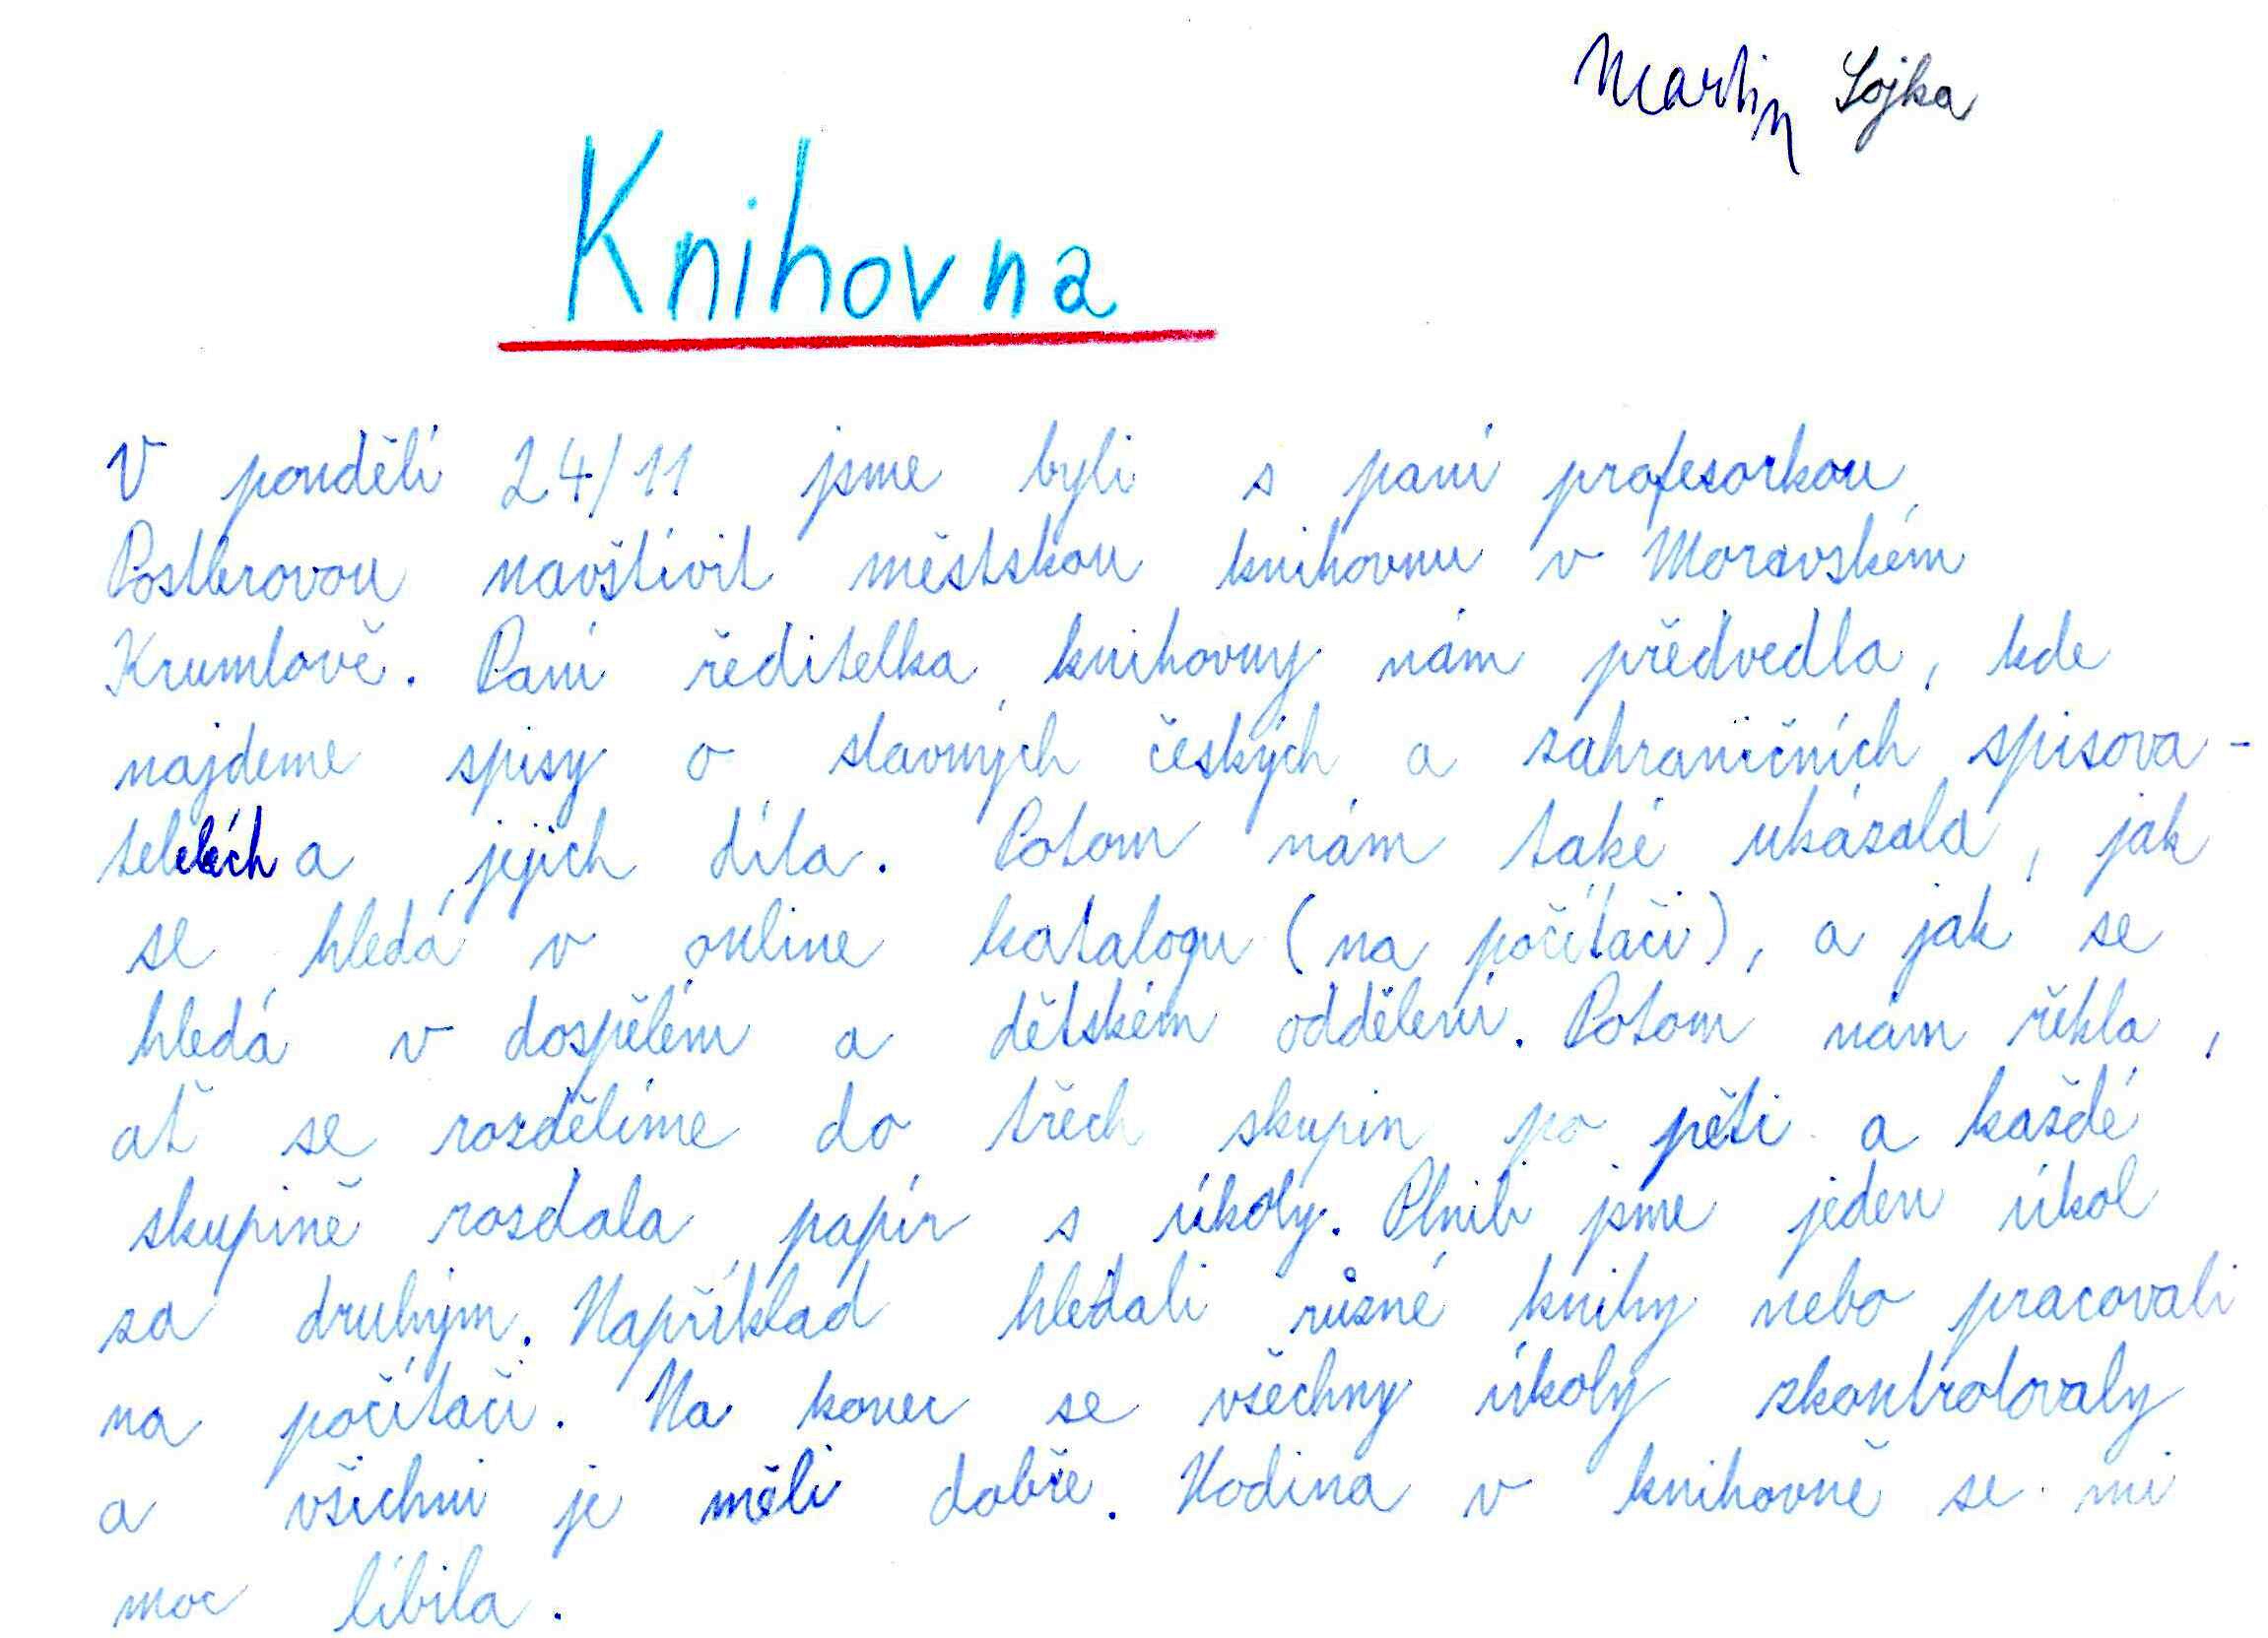 Martin Sojka
Knihovna
V pondělí 24/11 jsme byli s paní profesorkou
Postbrovou navštívit městskou knihovnu v Moravském
Krumlově. Paní ředitelka knihovny nám předvedla, kde
najdeme spisy o slavných českých a zahraničních spisova-
telelích a jejich díla. Potom nám také ukázala, jak
se hledá v online katalogu (na počítači), a jak se
hledá v dospělém a dětském oddělení. Potom nám řekla,
ať se rozdělíme do třech skupin po pěti a každé
skupině rozdala papír s úkoly. Plnili jsme jeden úkol
za druhým. Například hledali různé knihy nebo pracovali
na počítači. Na konec se všechny úkoly zkontrolovaly
a všichni je měli dobře. Hodina v knihovně se mi
moc líbila.